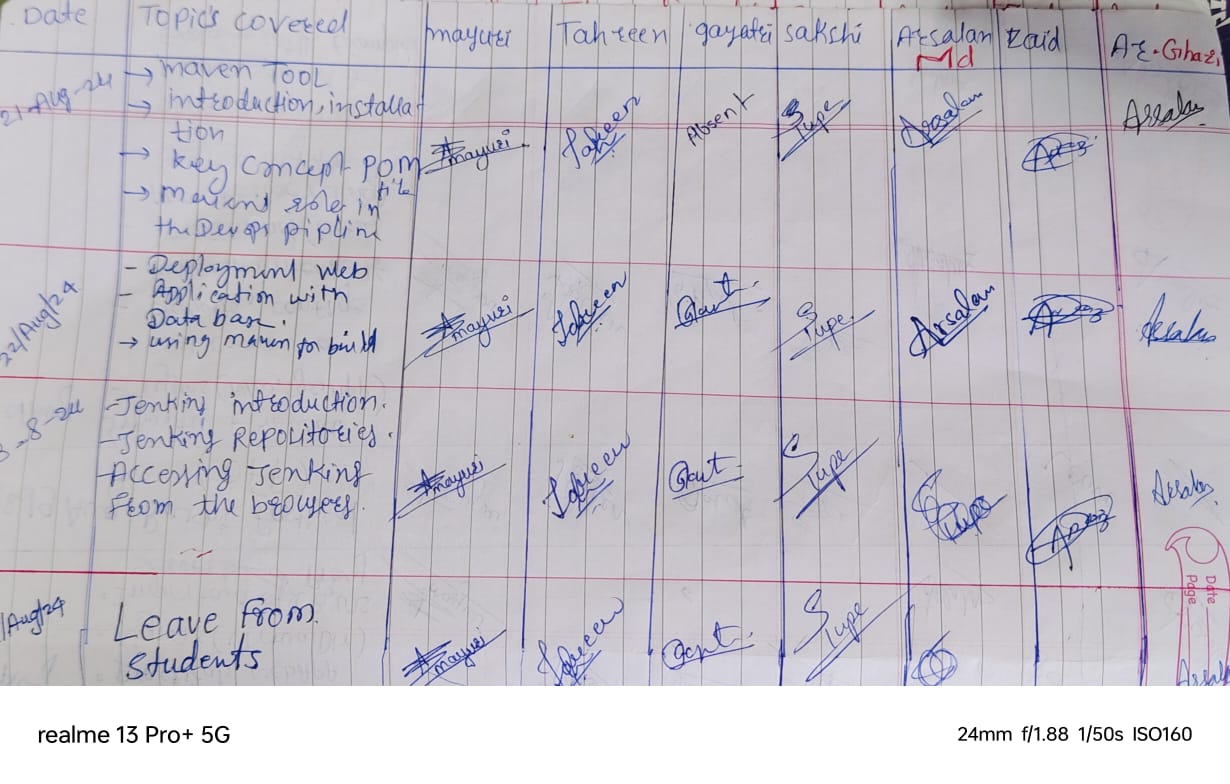 Date Topics covered mayuri Tahreen gayatri sakshi Arsalan zaid Ar. Ghazi
Md
21-Aug-24 → maven TOOL
→ introduction, installa
tion
→ key concept POM
file
→ maven's role in
the Devops pipline
mayuri Tahreen Absent Tupe Arsalan Arsalan
22/Aug/24 - Deployment web
- Application with
Data base.
→ using maven for build
mayuri Tahreen Tupe Arsalan Arsalan
-8-24 -Jenking introduction.
-Jenking Repolitories.
-Accessing Jenking
From the brouyers.
mayuri Tahreen Tupe Tupe Arsalan
/Aug/24 Leave From
Students
mayuri Tahreen Tupe Arsal
Date
Page
realme 13 Pro+ 5G
24mm f/1.88 1/50s ISO160